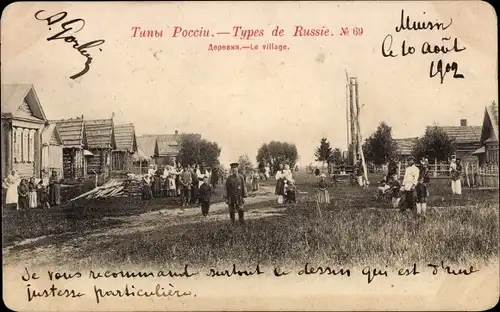 Типы Россіи. — Types de Russie. № 69
Деревня. — Le village.
Le 10 Août
1902
Je vous recommand surtout ce dessin qui est d'une
justesse particulière.